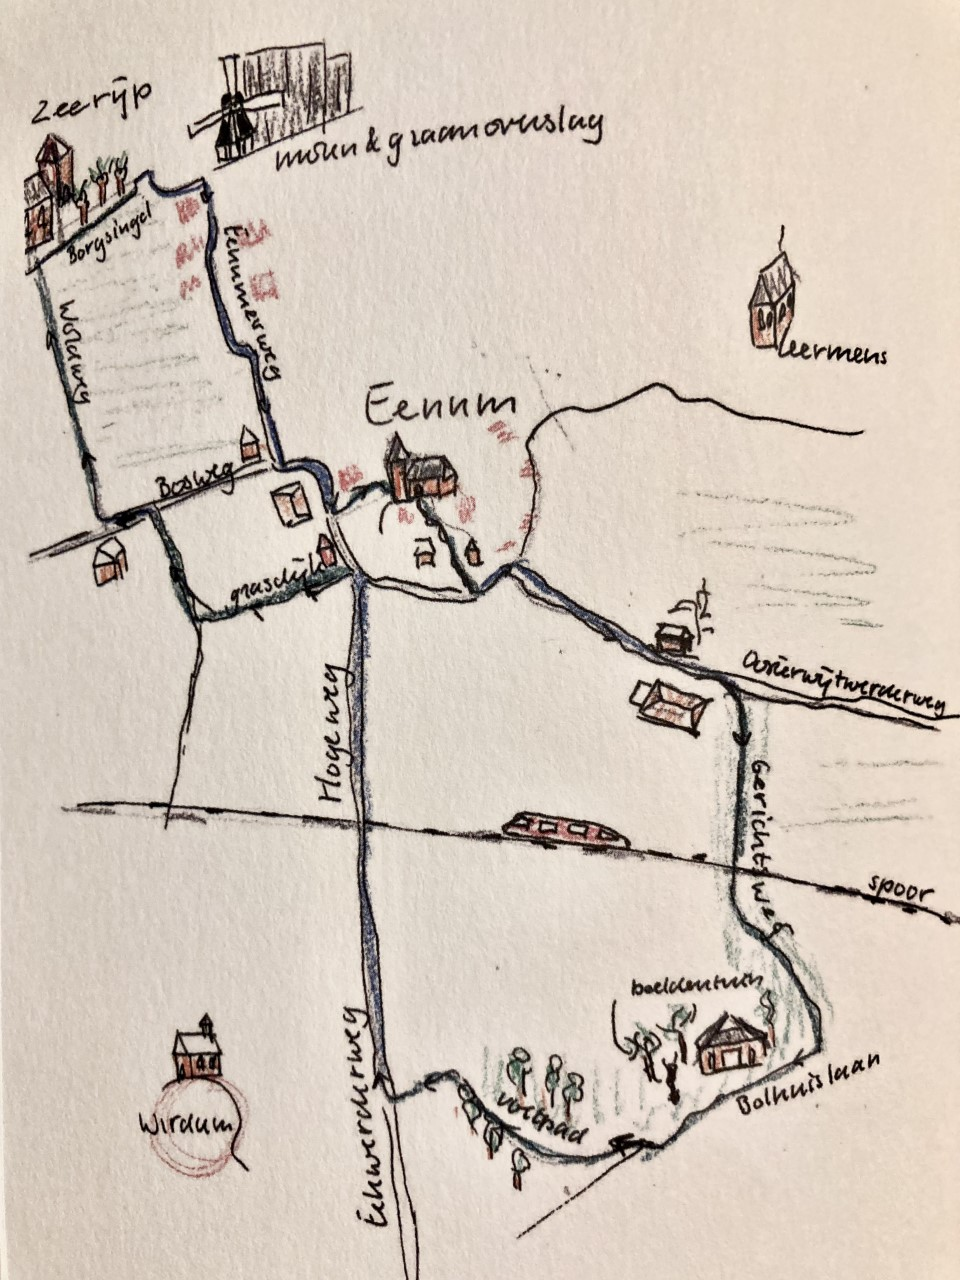 Zeerijp
molen & graanoverslag
Borgsingel
Eenumerweg
Woldweg
Leermens
Eenum
Bosweg
grasdijk
Oosterwijtwerderweg
Hogeweg
Gerichtsweg
spoor
beeldentuin
Wirdum
Bolhuislaan
voetpad
Ekwerderweg